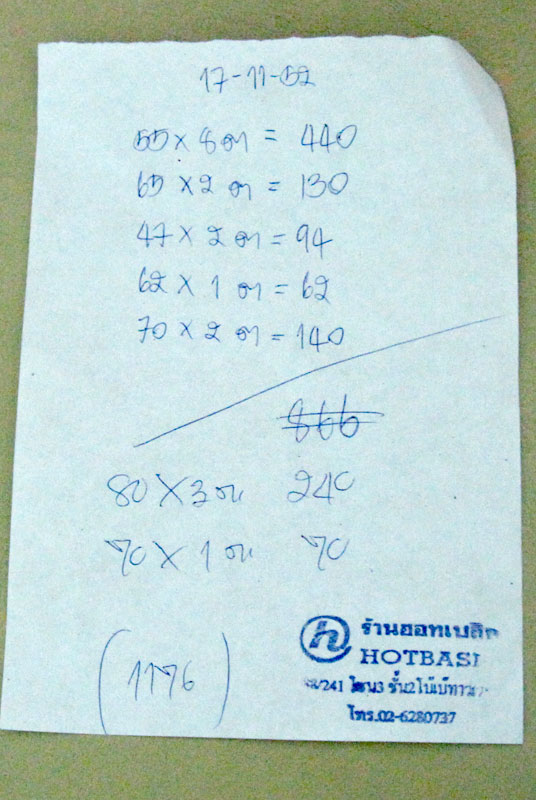 17-11-52
55 x 8 ต = 440
65 x 2 ต = 130
47 x 2 ต = 94
62 x 1 ต = 62
70 x 2 ต = 140
866
80 x 3 ต 240
70 x 1 ต 70
(1176)
h
ร้านฮอทเบสิค
HOTBASI
/241 โซน3 ชั้น2 โบ๊เบ๊ทาวเ
โทร.02-6280737